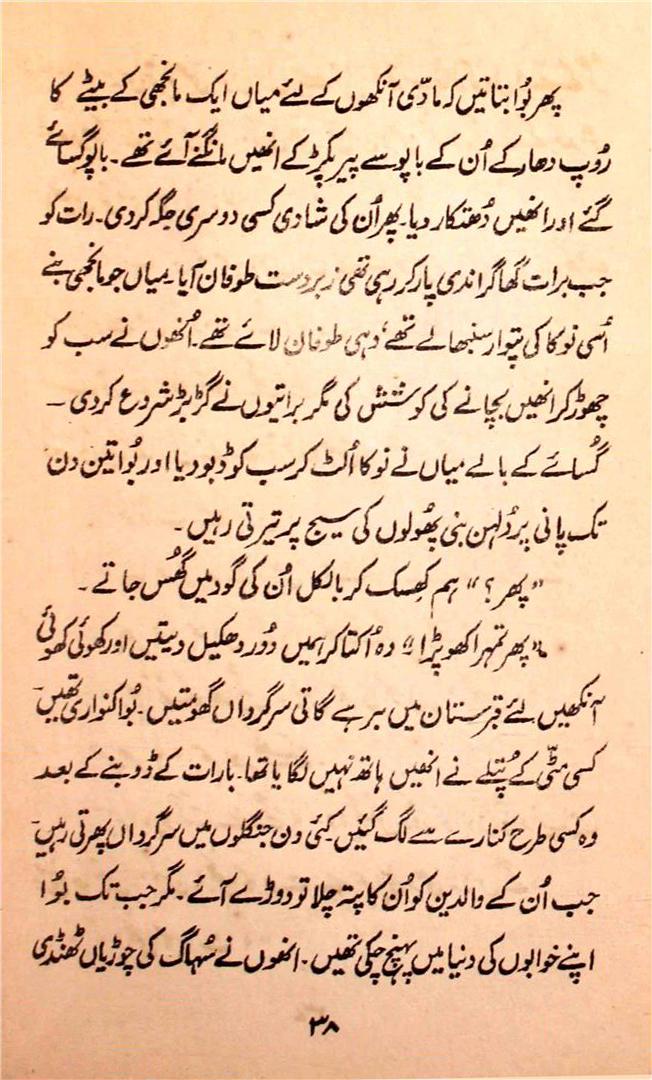 پھر بُوا بتاتیں کہ مادّی آنکھوں کے لئے میاں ایک مانجھی کے بیٹے کا
رُوپ دھار کے اُن کے باپو سے پیر پکڑ کے انھیں مانگنے آئے تھے۔ باپو گسائے
گئے اور انھیں دُھتکار دیا۔ پھر اُن کی شادی کسی دوسری جگہ کر دی۔ رات کو
جب برات گھاگرا ندی پار کر رہی تھی زبردست طوفان آیا۔ میاں جو مانجھی بنے
اُسی نوکا کی پتوار سنبھالے تھے، وہی طوفان لائے تھے۔ اُنھوں نے سب کو
چھوڑ کر انھیں بچانے کی کوشش کی مگر براتیوں نے گڑبڑ شروع کر دی ۔
گُسائے کے بالے میاں نے نوکا اُلٹ کر سب کو ڈبو دیا اور بُوا تین دن
تک پانی پر دُلہن بنی پھُولوں کی سیج پر تیرتی رہیں۔
”پھر؟“ ہم کھِسک کر بالکل اُن کی گود میں گھُس جاتے ۔
”پھر تمہرا کھوپڑا“ وہ اُکتا کر ہمیں دُور دھکیل دیتیں اور کھوئی کھوئی
آنکھیں لئے قبرستان میں سرہے گاتی سرگرداں گھومتیں۔ بُوا کنواری تھیں
کسی مٹّی کے پُتلے نے انھیں ہاتھ نہیں لگایا تھا۔ بارات کے ڈوبنے کے بعد
وہ کسی طرح کنارے سے لگ گئیں کئی دن جنگلوں میں سرگرداں پھرتی رہیں
جب اُن کے والدین کو اُن کا پتہ چلا تو دوڑے آئے۔ مگر جب تک بُوا
اپنے خوابوں کی دنیا میں پہنچ چکی تھیں۔ انھوں نے سُہاگ کی چوڑیاں ٹھنڈی
۳۸